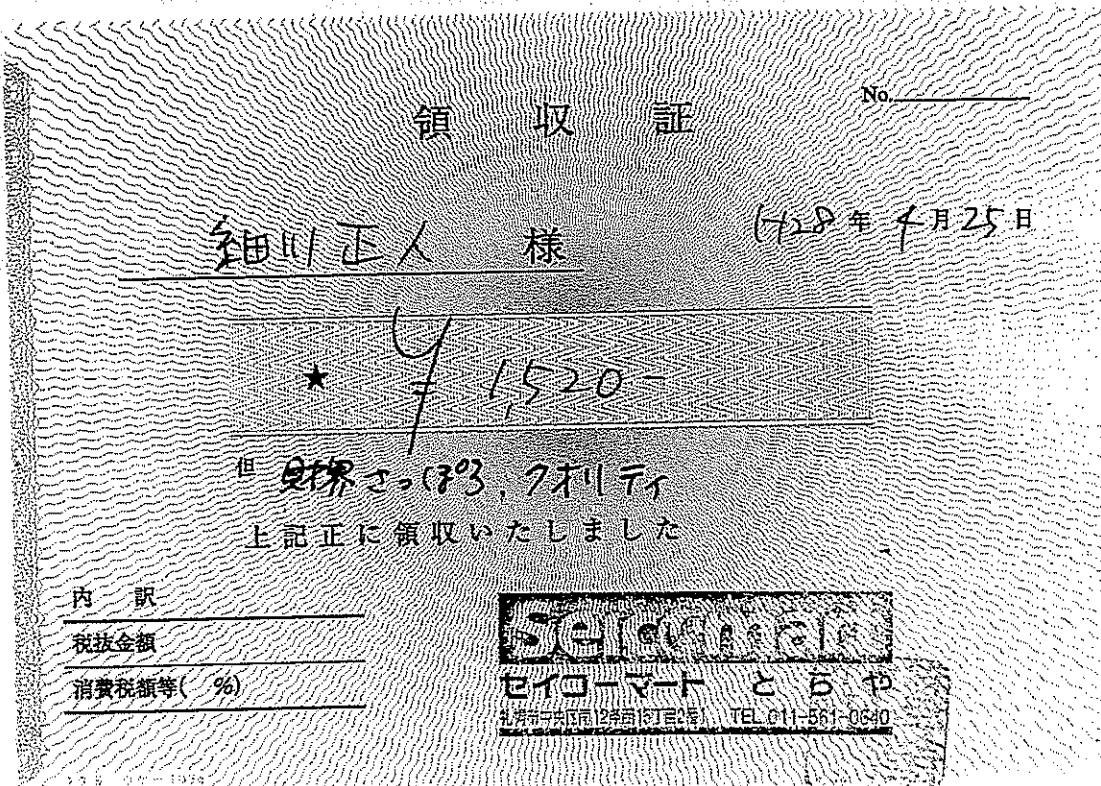 No.
領収証
細川正人 様
H28年4月25日
★ ¥ 1,520-
但 財界さっぽろ、クオリティ
上記正に領収いたしました
内訳
税抜金額
消費税額等( %)
Seicomart
セイコーマート とらや
札幌市中央区南12条西15丁目2番1 TEL.011-561-0640